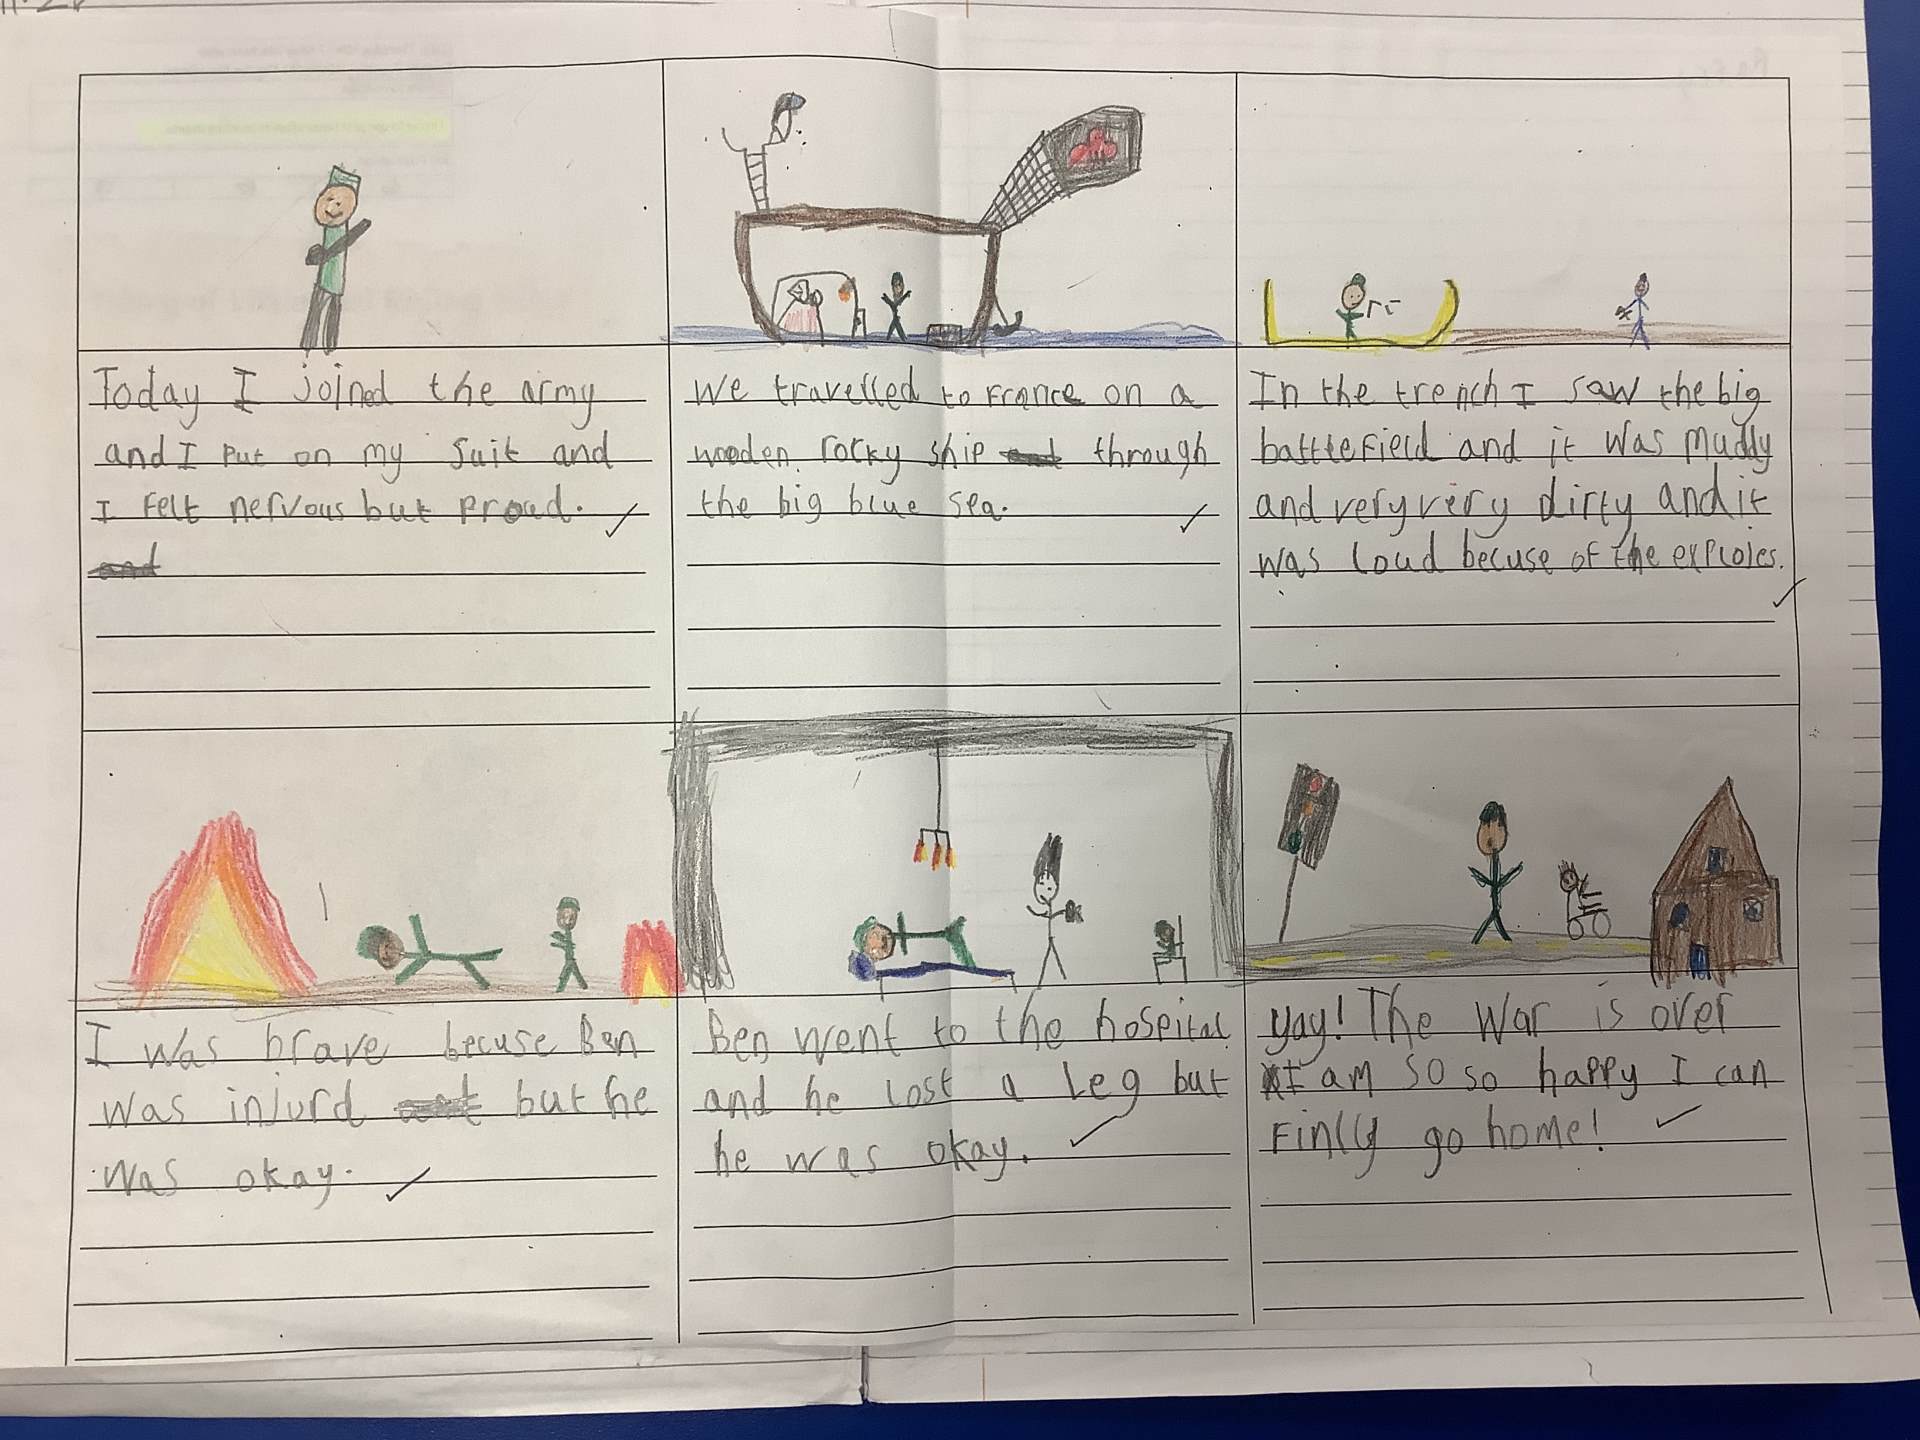 Today I joined the army
and I put on my suit and
I felt nervous but proud.
and
We travelled to France on a
wooden rocky ship and through
the big blue sea.
In the trench I saw the big
battlefield and it was muddy
and very very dirty and it
was loud becuse of the exploies.
I was brave becuse Ben
was injurd but he
was okay.
Ben went to the hospital
and he lost a leg but
he was okay.
yay! The war is over
I am so so happy I can
Finlly go home!